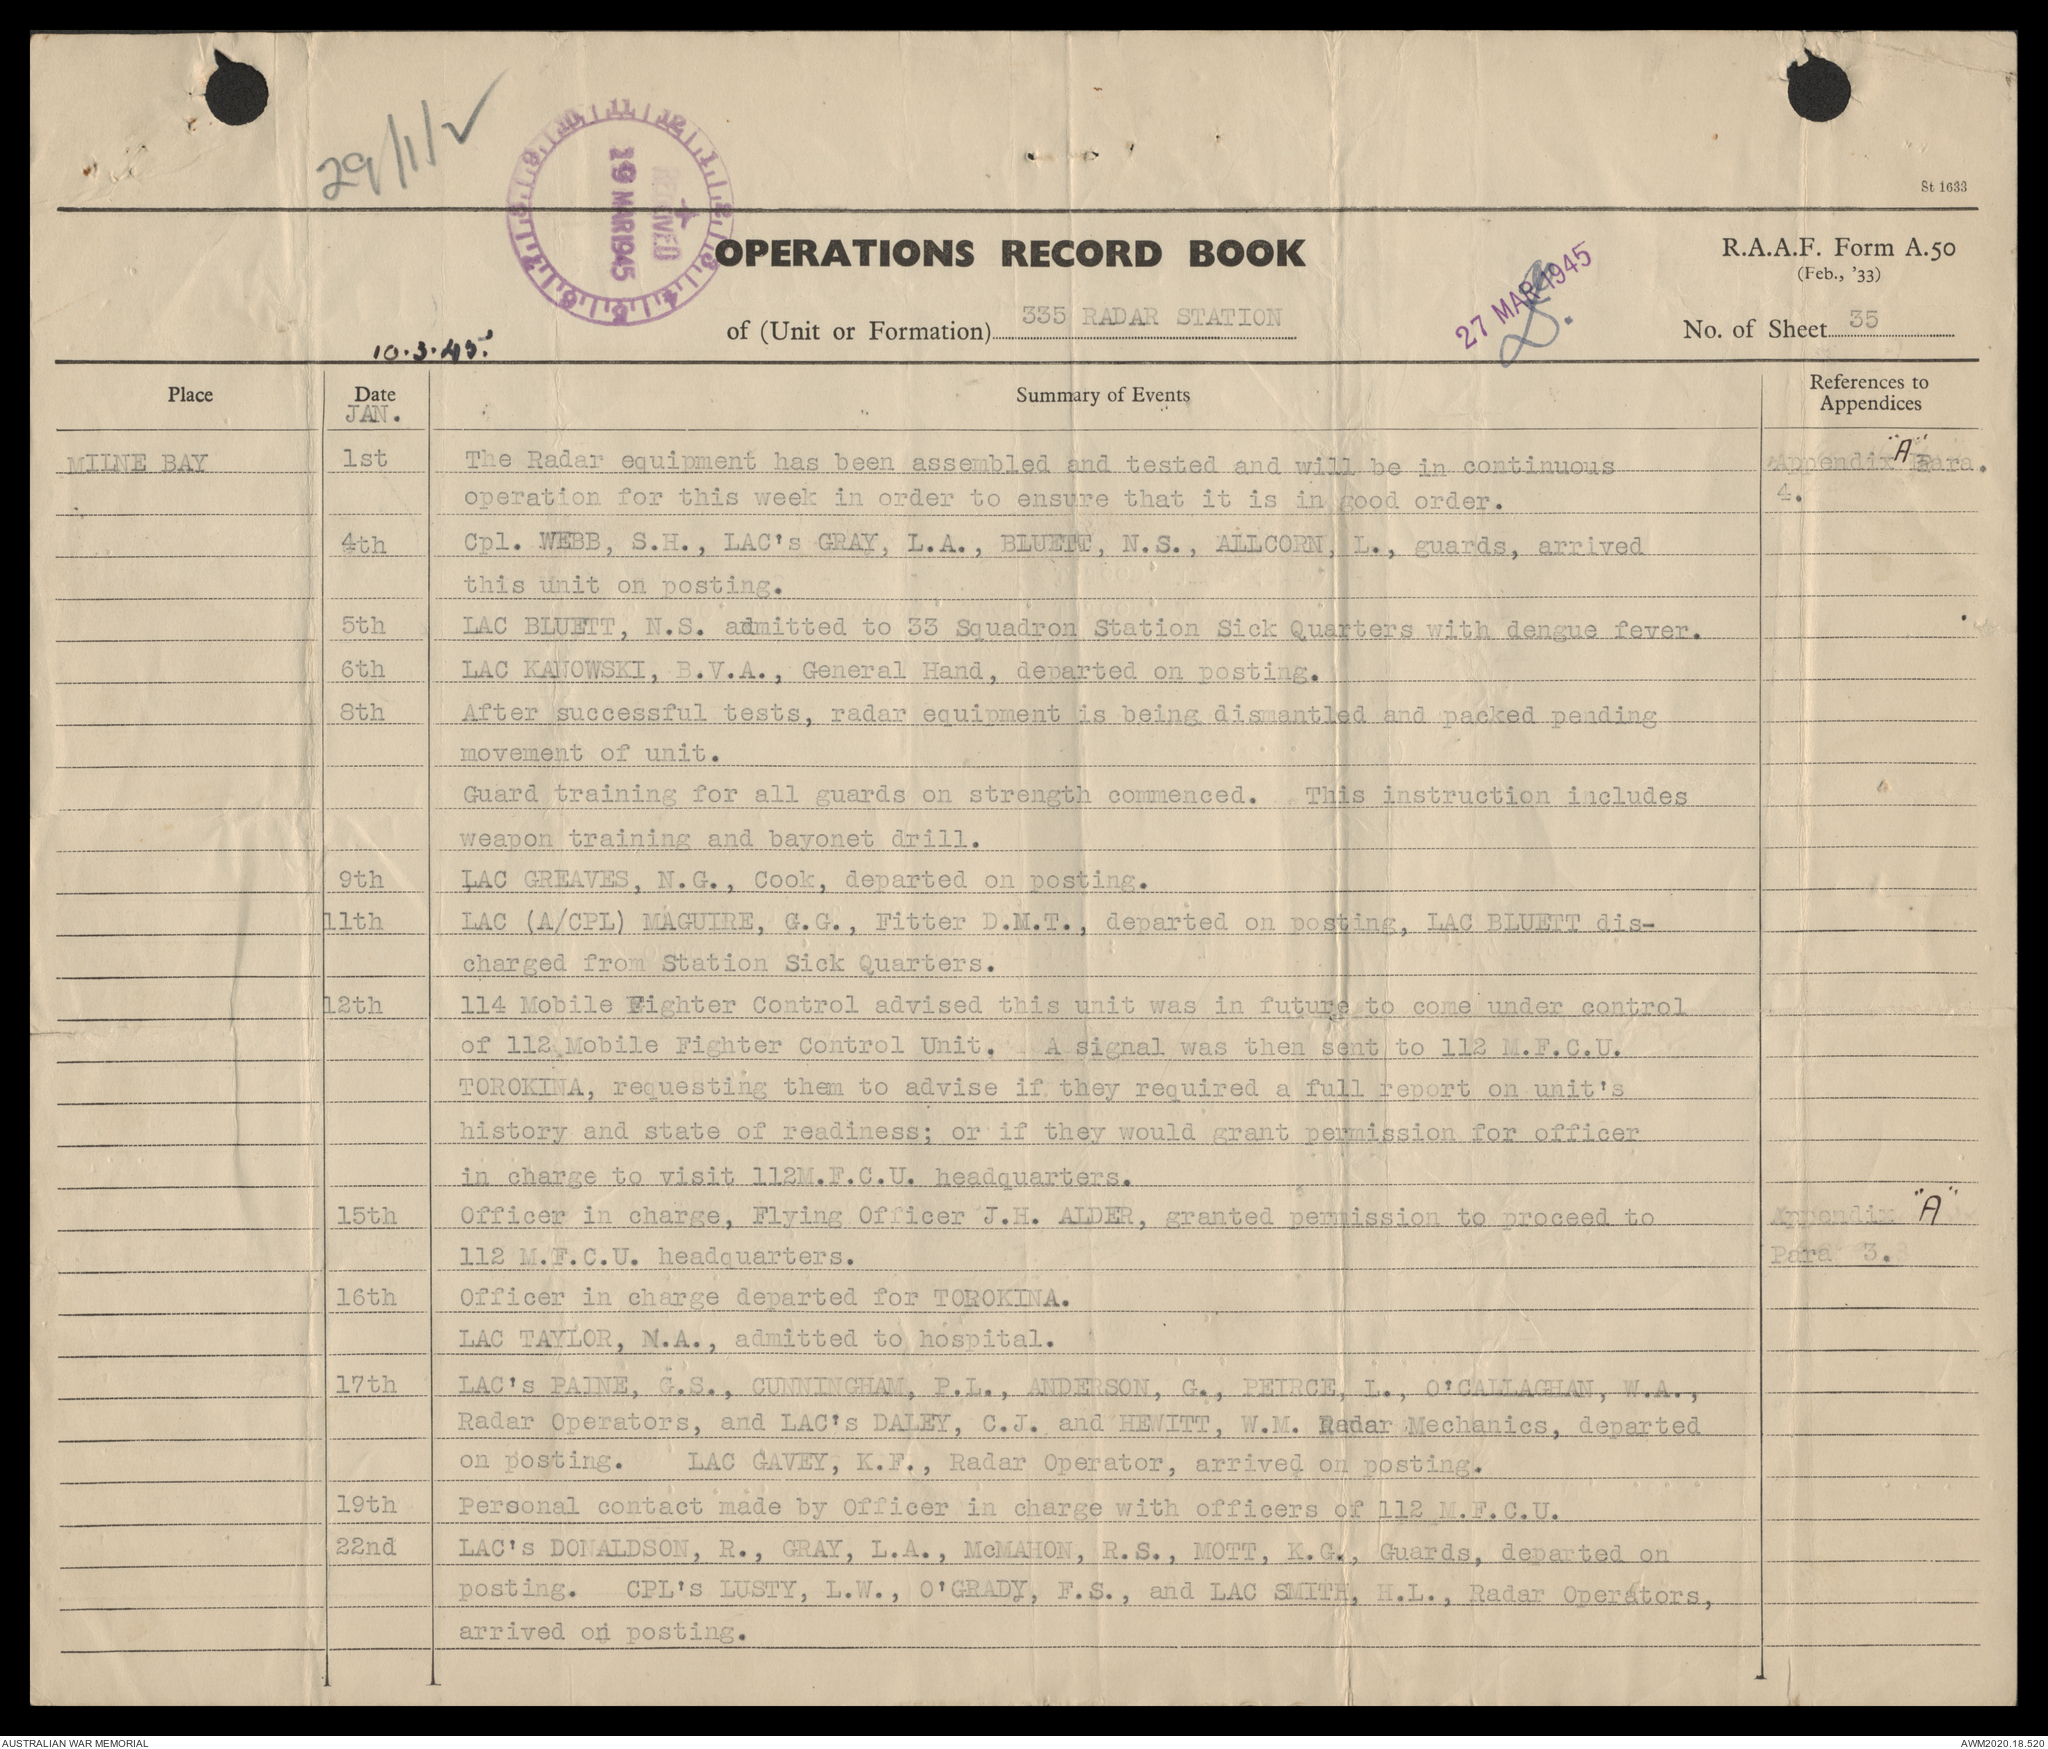 29/1/2
St 1633
RECEIVED
19 MAR 1945
OPERATIONS RECORD BOOK
R.A.A.F. Form A.50
(Feb., '33)
27 MAR 1945
of (Unit or Formation) 335 RADAR STATION
No. of Sheet 35
10.3.45.
Place
Date
Summary of Events
References to
Appendices
JAN.
MILNE BAY 1st The Radar equipment has been assembled and tested and will be in continuous Appendix "A" Para.
operation for this week in order to ensure that it is in good order. 4.
4th Cpl. WEBB, S.H., LAC's GRAY, L.A., BLUETT, N.S., ALLCORN, L., guards, arrived
this unit on posting.
5th LAC BLUETT, N.S. admitted to 33 Squadron Station Sick Quarters with dengue fever.
6th LAC KANOWSKI, B.V.A., General Hand, departed on posting.
8th After successful tests, radar equipment is being dismantled and packed pending
movement of unit.
Guard training for all guards on strength commenced. This instruction includes
weapon training and bayonet drill.
9th LAC GREAVES, N.G., Cook, departed on posting.
11th LAC (A/CPL) MAGUIRE, G.G., Fitter D.M.T., departed on posting, LAC BLUETT dis-
charged from Station Sick Quarters.
12th 114 Mobile Fighter Control advised this unit was in future to come under control
of 112 Mobile Fighter Control Unit. A signal was then sent to 112 M.F.C.U.
TOROKINA, requesting them to advise if they required a full report on unit's
history and state of readiness; or if they would grant permission for officer
in charge to visit 112M.F.C.U. headquarters.
15th Officer in charge, Flying Officer J.H. ALDER, granted permission to proceed to Appendix "A"
112 M.F.C.U. headquarters. Para 3.
16th Officer in charge departed for TOROKINA.
LAC TAYLOR, N.A., admitted to hospital.
17th LAC's PAINE, G.S., CUNNINGHAM, P.L., ANDERSON, G., PEIRCE, L., O'CALLAGHAN, W.A.,
Radar Operators, and LAC's DALEY, C.J. and HEWITT, W.M. Radar Mechanics, departed
on posting. LAC GAVEY, K.F., Radar Operator, arrived on posting.
19th Personal contact made by Officer in charge with officers of 112 M.F.C.U.
22nd LAC's DONALDSON, R., GRAY, L.A., McMAHON, R.S., MOTT, K.G., Guards, departed on
posting. CPL's LUSTY, L.W., O'GRADY, F.S., and LAC SMITH, H.L., Radar Operators,
arrived on posting.
AUSTRALIAN WAR MEMORIAL
AWM2020.18.520